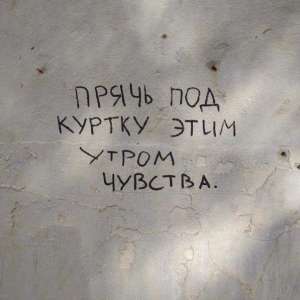 ПРЯЧЬ ПОД
КУРТКУ ЭТИМ
УТРОМ
ЧУВСТВА.